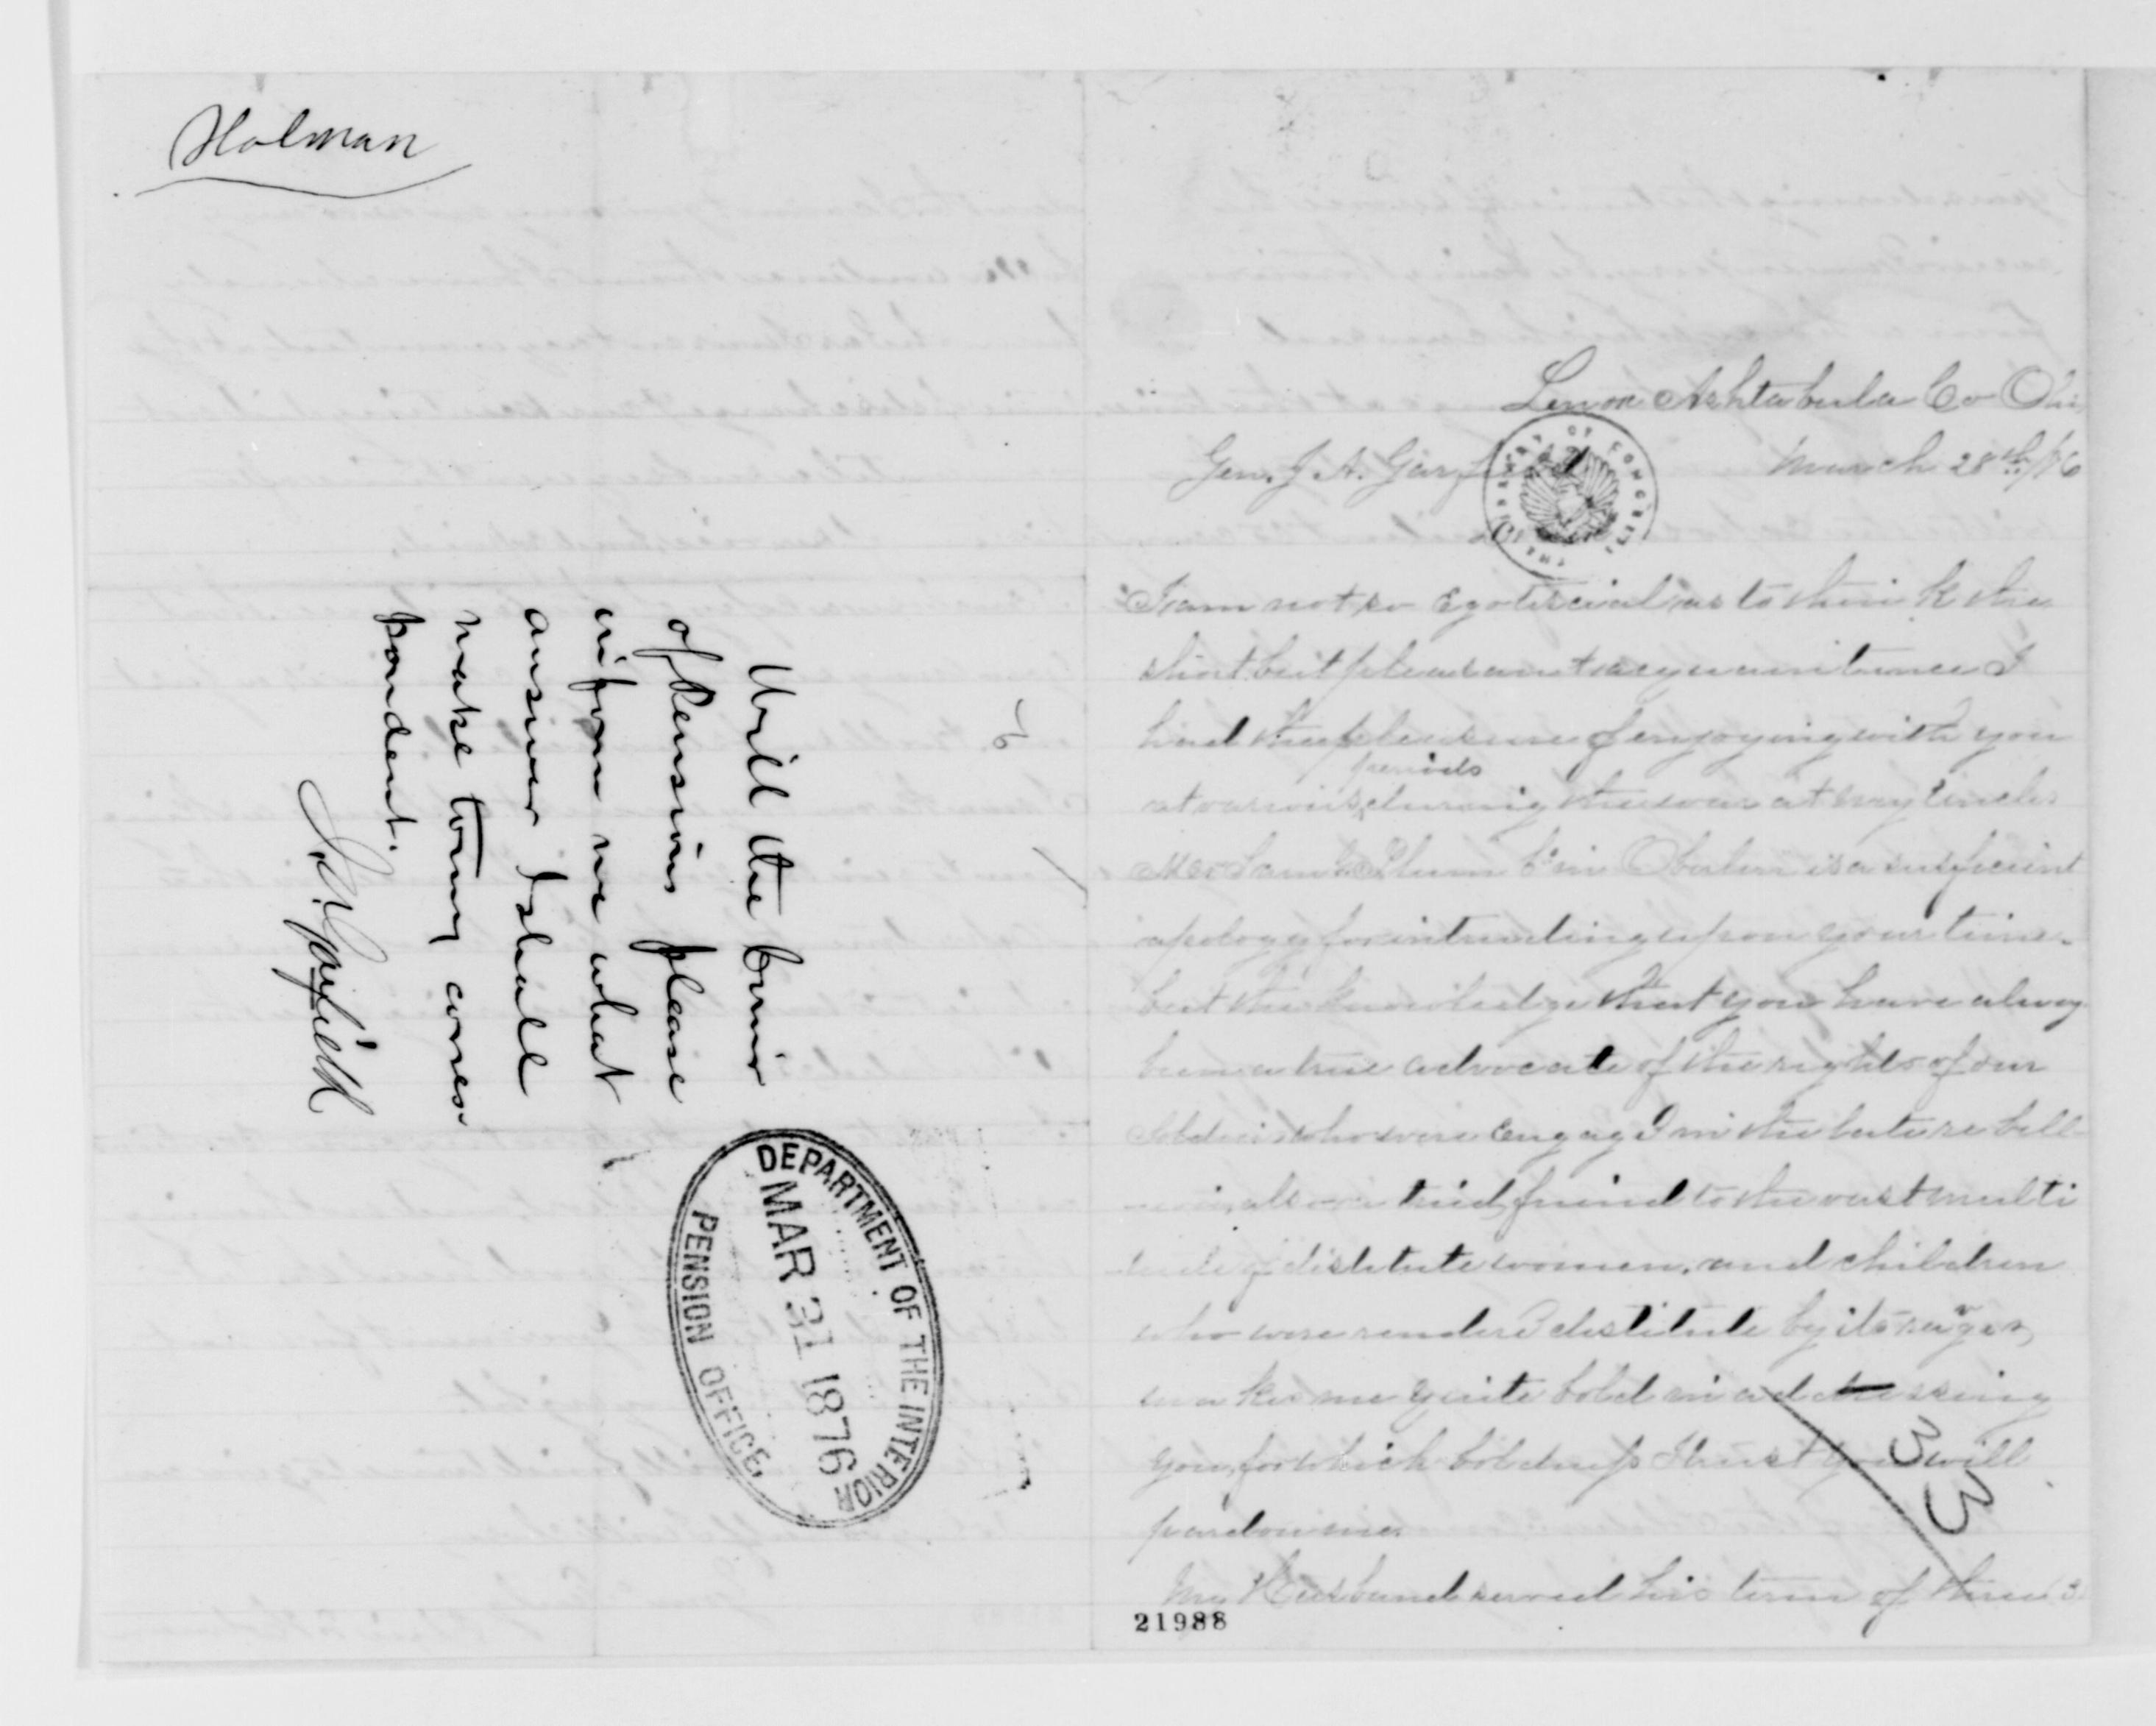 Holman
Will the Comr
of Pensions please
inform me what
answer I shall
make to my corres-
pondent.
J. A. Garfield
DEPARTMENT OF THE INTERIOR
MAR 31 1876
PENSION OFFICE.
Lenox Ashtabula Co Ohio
March 28th /76
Gen. J A. Garf
THE LIBRARY OF CONGRESS
I am not so Egotistical as to think the
short but pleasant acquaintance I
had the pleasure of enjoying with you
periods
at various during the war at my Uncles
Plumb in Oberlin is a sufficient
apology for intruding upon your time.
but the knowledge that you have alway
been a true advocate of the rights of our
Soldiers who were Engagd in the
also a tried friend to the vast multi
tude of distitute women, and children
who were renderd destitute by its ravages,
makes me quite bold in addressing
you, for which boldness I trust you will
pardon me.
33
My Husband served his term of three 3
21988